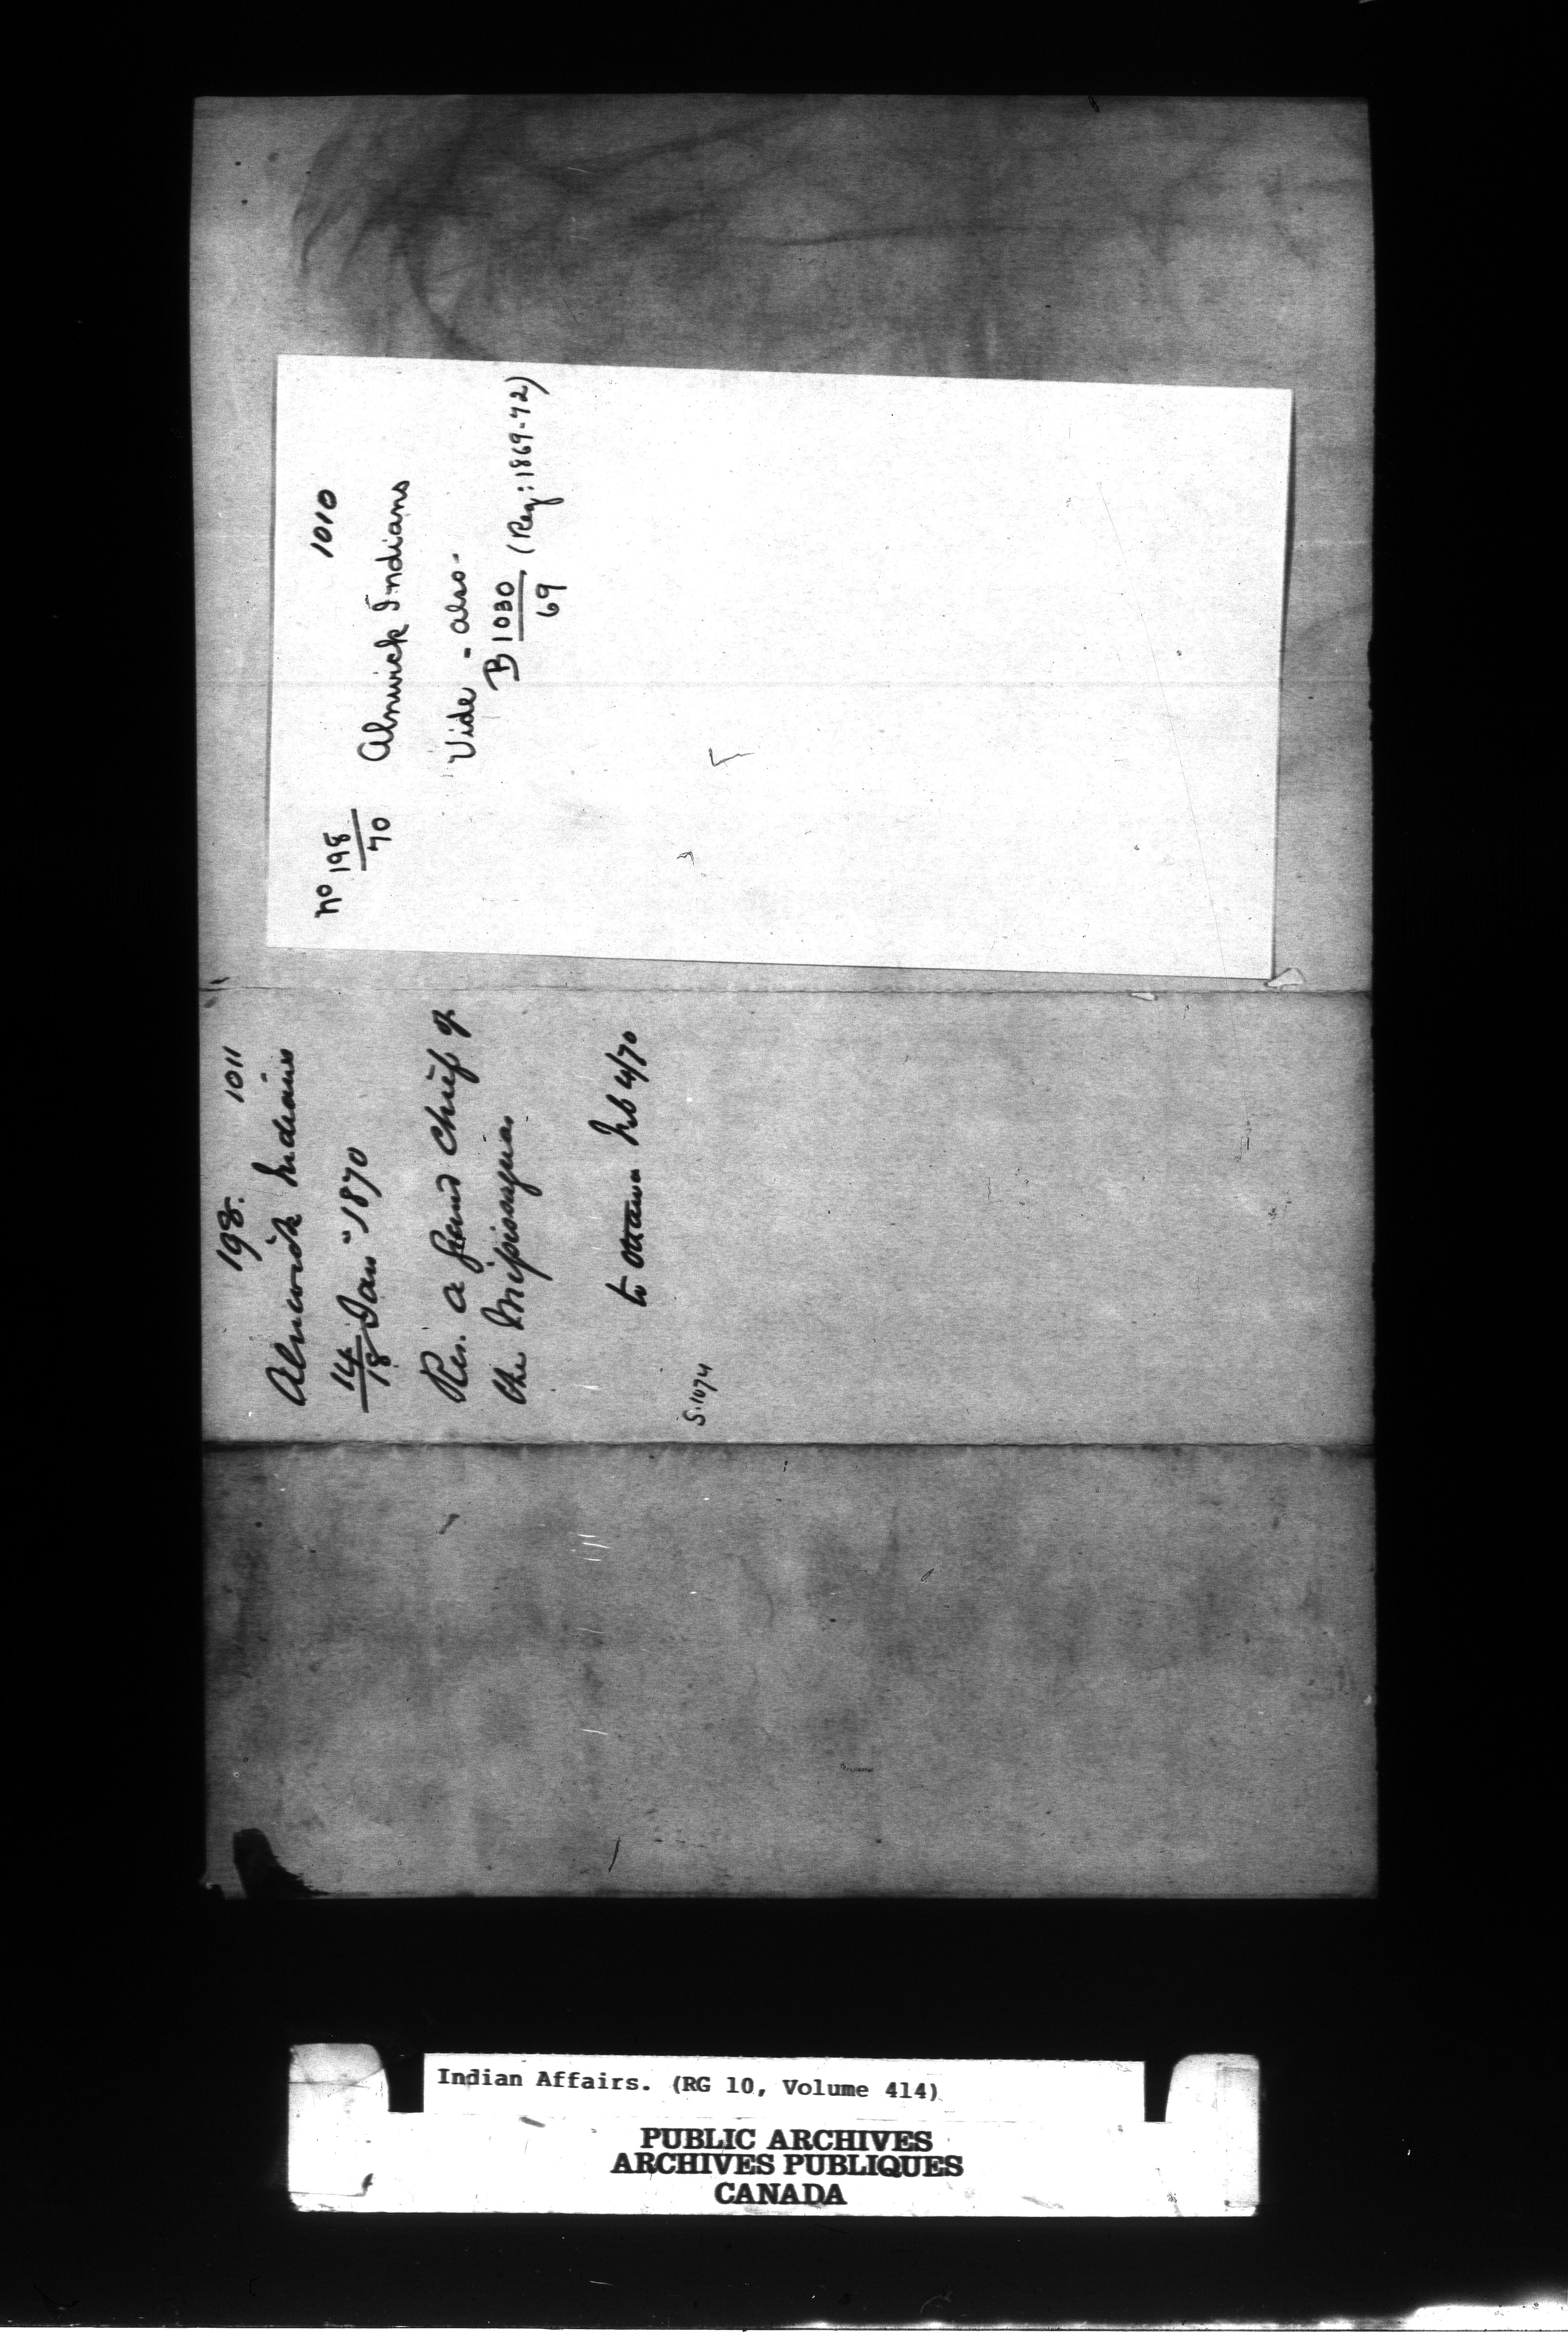 1010
No 198/70
Alnwick Indians
Vide - also -
B 1030/69 (Reg: 1869-72)
198. 1011
Alnwick Indians
14/18 Jan" 1870
Res. a Grand Chief of
the Missisaguas
to Ottawa Feb 4/70
S.1074
Indian Affairs. (RG 10, Volume 414)
PUBLIC ARCHIVES
ARCHIVES PUBLIQUES
CANADA